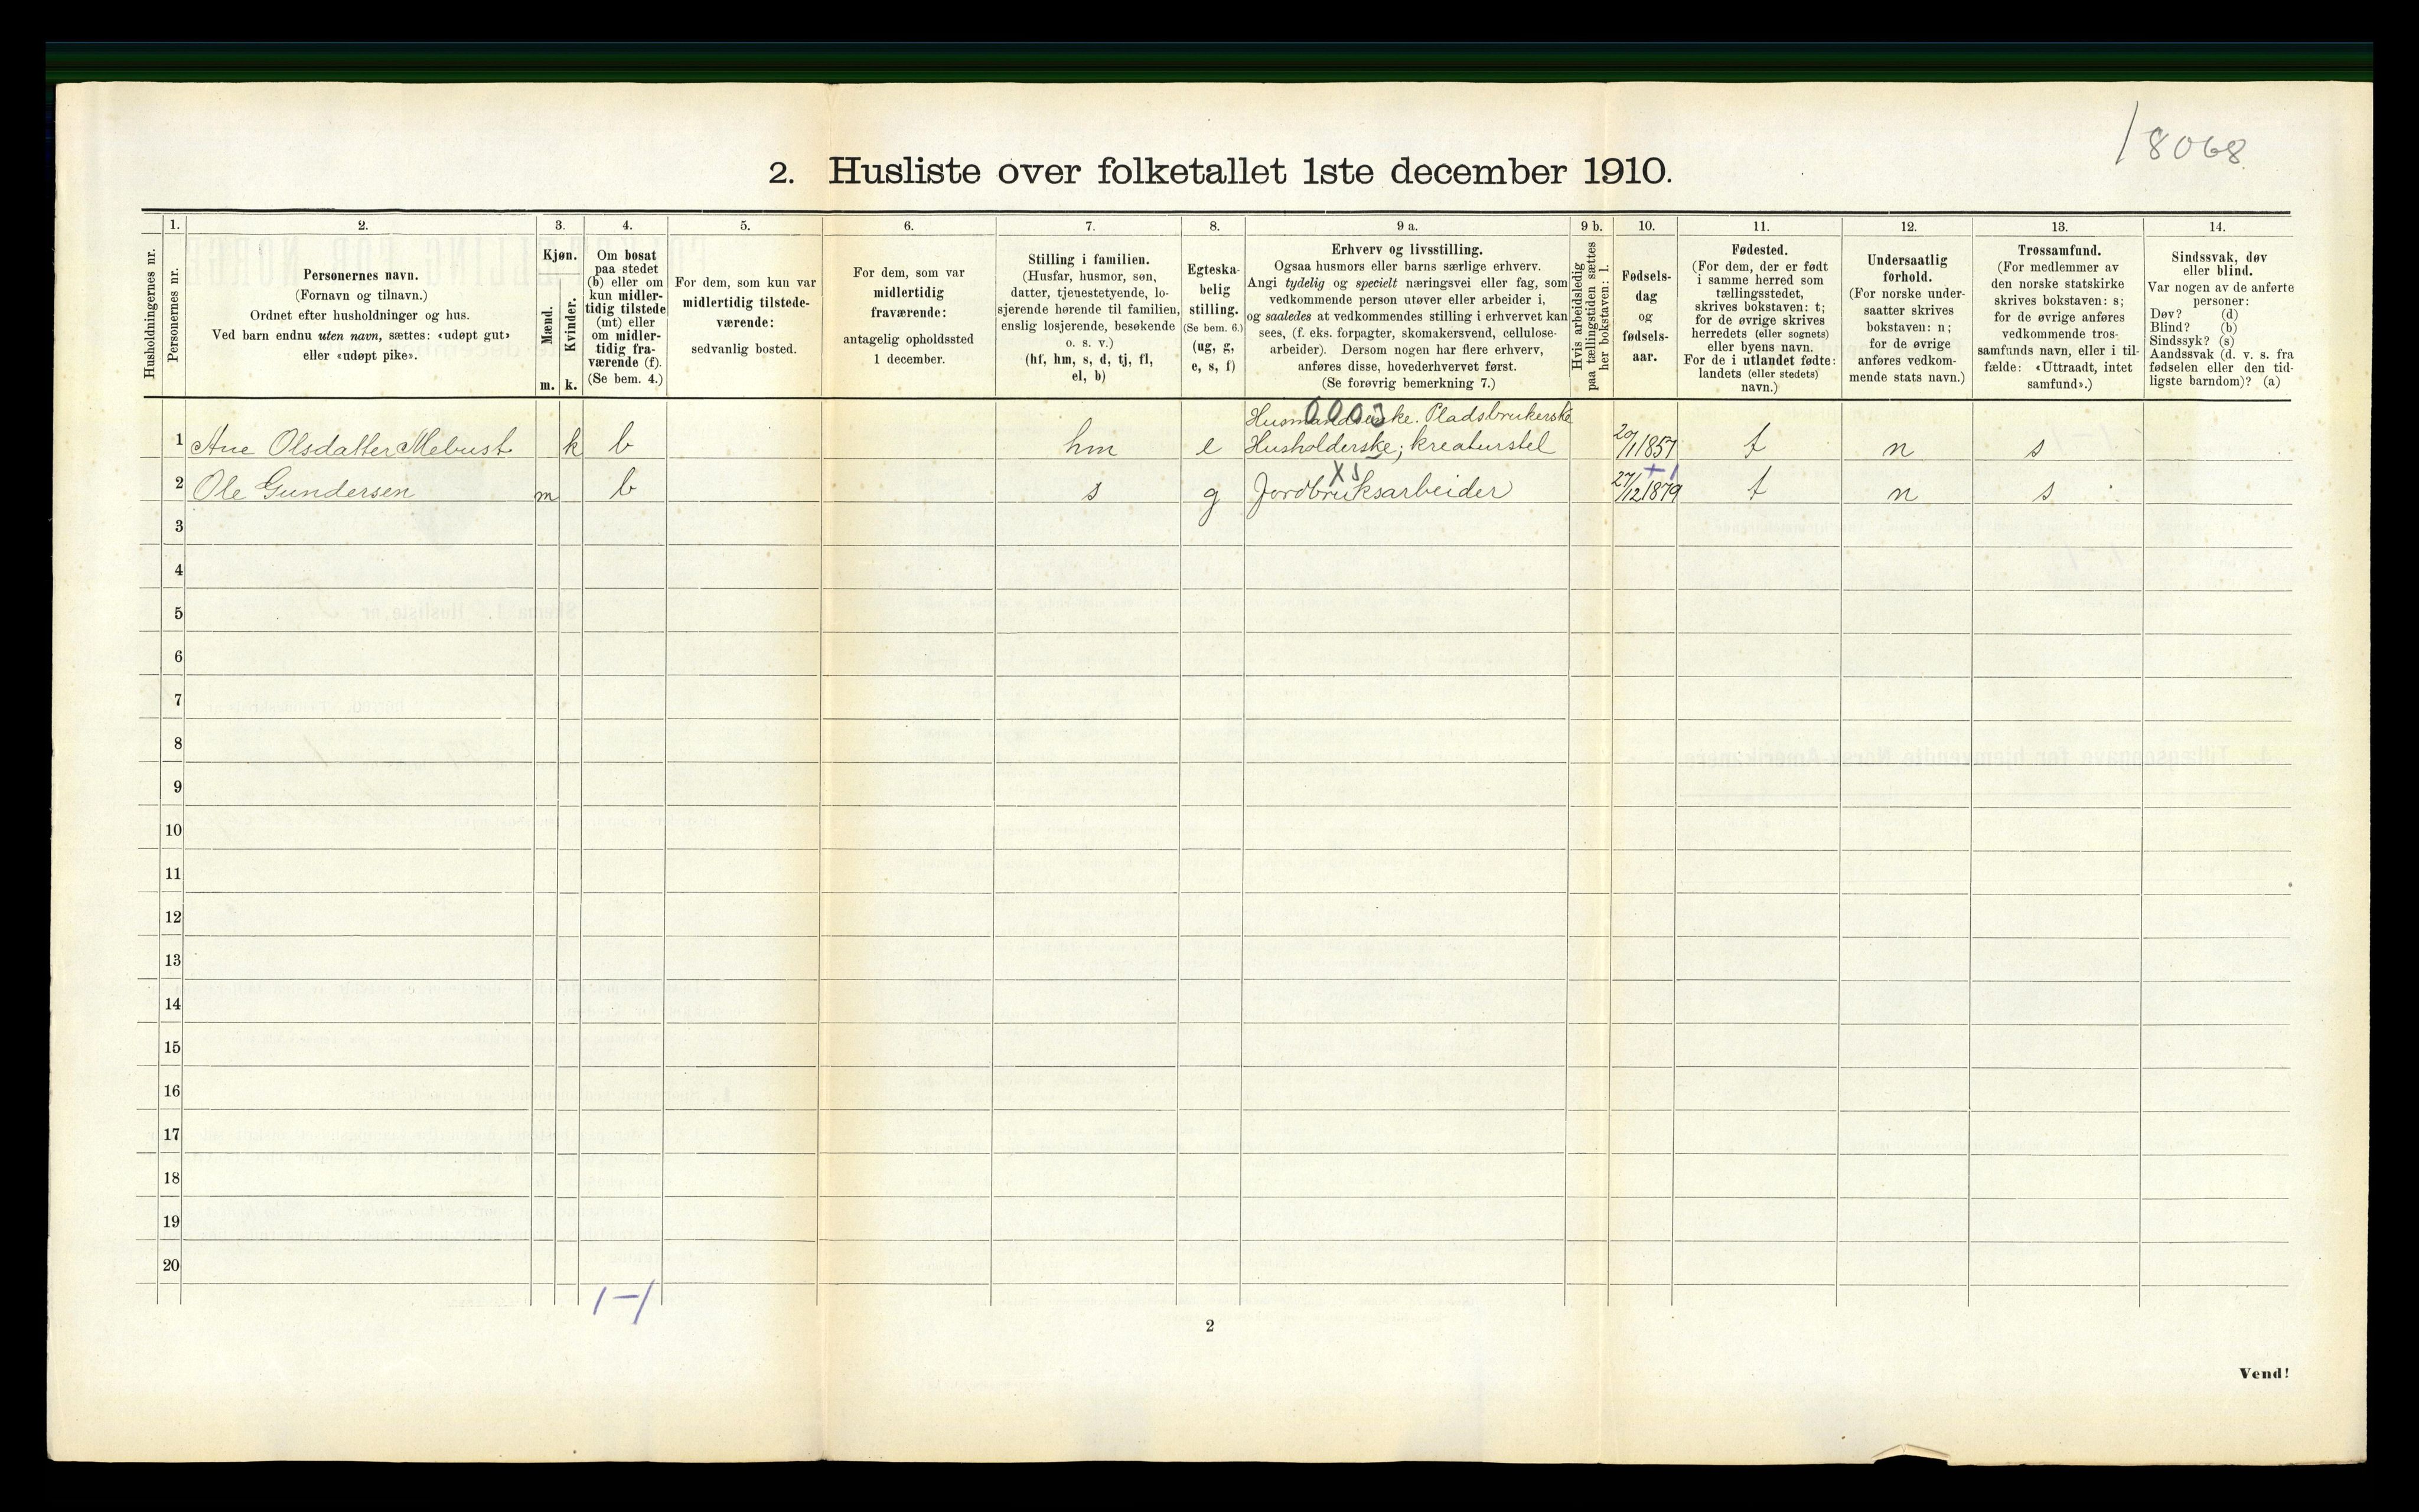 18068
2. Husliste over folketallet 1ste december 1910.
Husholdningernes nr.
1.
Personernes nr.
2.
Personernes navn.
(Fornavn og tilnavn.)
Ordnet efter husholdninger og hus.
Ved barn endnu uten navn, sættes: «udøpt gut»
eller «udøpt pike».
3.
Kjøn.
Mænd.
Kvinder.
m. k.
4.
Om bosat
paa stedet
(b) eller om
kun midler-
tidig tilstede
(mt) eller
om midler-
tidig fra-
værende (f).
(Se bem. 4.)
5.
For dem, som kun var
midlertidig tilstede-
værende:
sedvanlig bosted.
6.
For dem, som var
midlertidig
fraværende:
antagelig opholdssted
1 december.
7.
Stilling i familien.
(Husfar, husmor, søn,
datter, tjenestetyende, lo-
sjerende hørende til familien,
enslig losjerende, besøkende
o. s. v.)
(hf, hm, s, d, tj, fl,
el, b)
8.
Egteska-
belig
stilling.
(Se bem. 6.)
(ug, g,
e, s, f)
9 a.
Erhverv og livsstilling.
Ogsaa husmors eller barns særlige erhverv.
Angi tydelig og specielt næringsvei eller fag, som
vedkommende person utøver eller arbeider i,
og saaledes at vedkommendes stilling i erhvervet kan
sees, (f. eks. forpagter, skomakersvend, cellulose-
arbeider). Dersom nogen har flere erhverv,
anføres disse, hovederhvervet først.
(Se forøvrig bemerkning 7.)
9 b.
Hvis arbeidsledig
paa tællingstiden sættes
her bokstaven: l.
10.
Fødsels-
dag
og
fødsels-
aar.
11.
Fødested.
(For dem, der er født
i samme herred som
tællingsstedet,
skrives bokstaven: t;
for de øvrige skrives
herredets (eller sognets)
eller byens navn.
For de i utlandet fødte:
landets (eller stedets)
navn.)
12.
Undersaatlig
forhold.
(For norske under-
saatter skrives
bokstaven: n;
for de øvrige
anføres vedkom-
mende stats navn.)
13.
Trossamfund.
(For medlemmer av
den norske statskirke
skrives bokstaven: s;
for de øvrige anføres
vedkommende tros-
samfunds navn, eller i til-
fælde: «Uttraadt, intet
samfund».)
14.
Sindssvak, døv
eller blind.
Var nogen av de anførte
personer:
Døv? (d)
Blind? (b)
Sindssyk? (s)
Aandssvak (d. v. s. fra
fødselen eller den tid-
ligste barndom)? (a)
Pladsbrukerske
1 Ane Olsdatter Mebust k b hm e Husholderske; kreaturstel 20/1 1857 t n s
2 Ole Gundersen m b s g Jordbruksarbeider 27/12 1879 t n s
3
4
5
6
7
8
9
10
11
12
13
14
15
16
17
18
19
20
1-1
2
Vend!